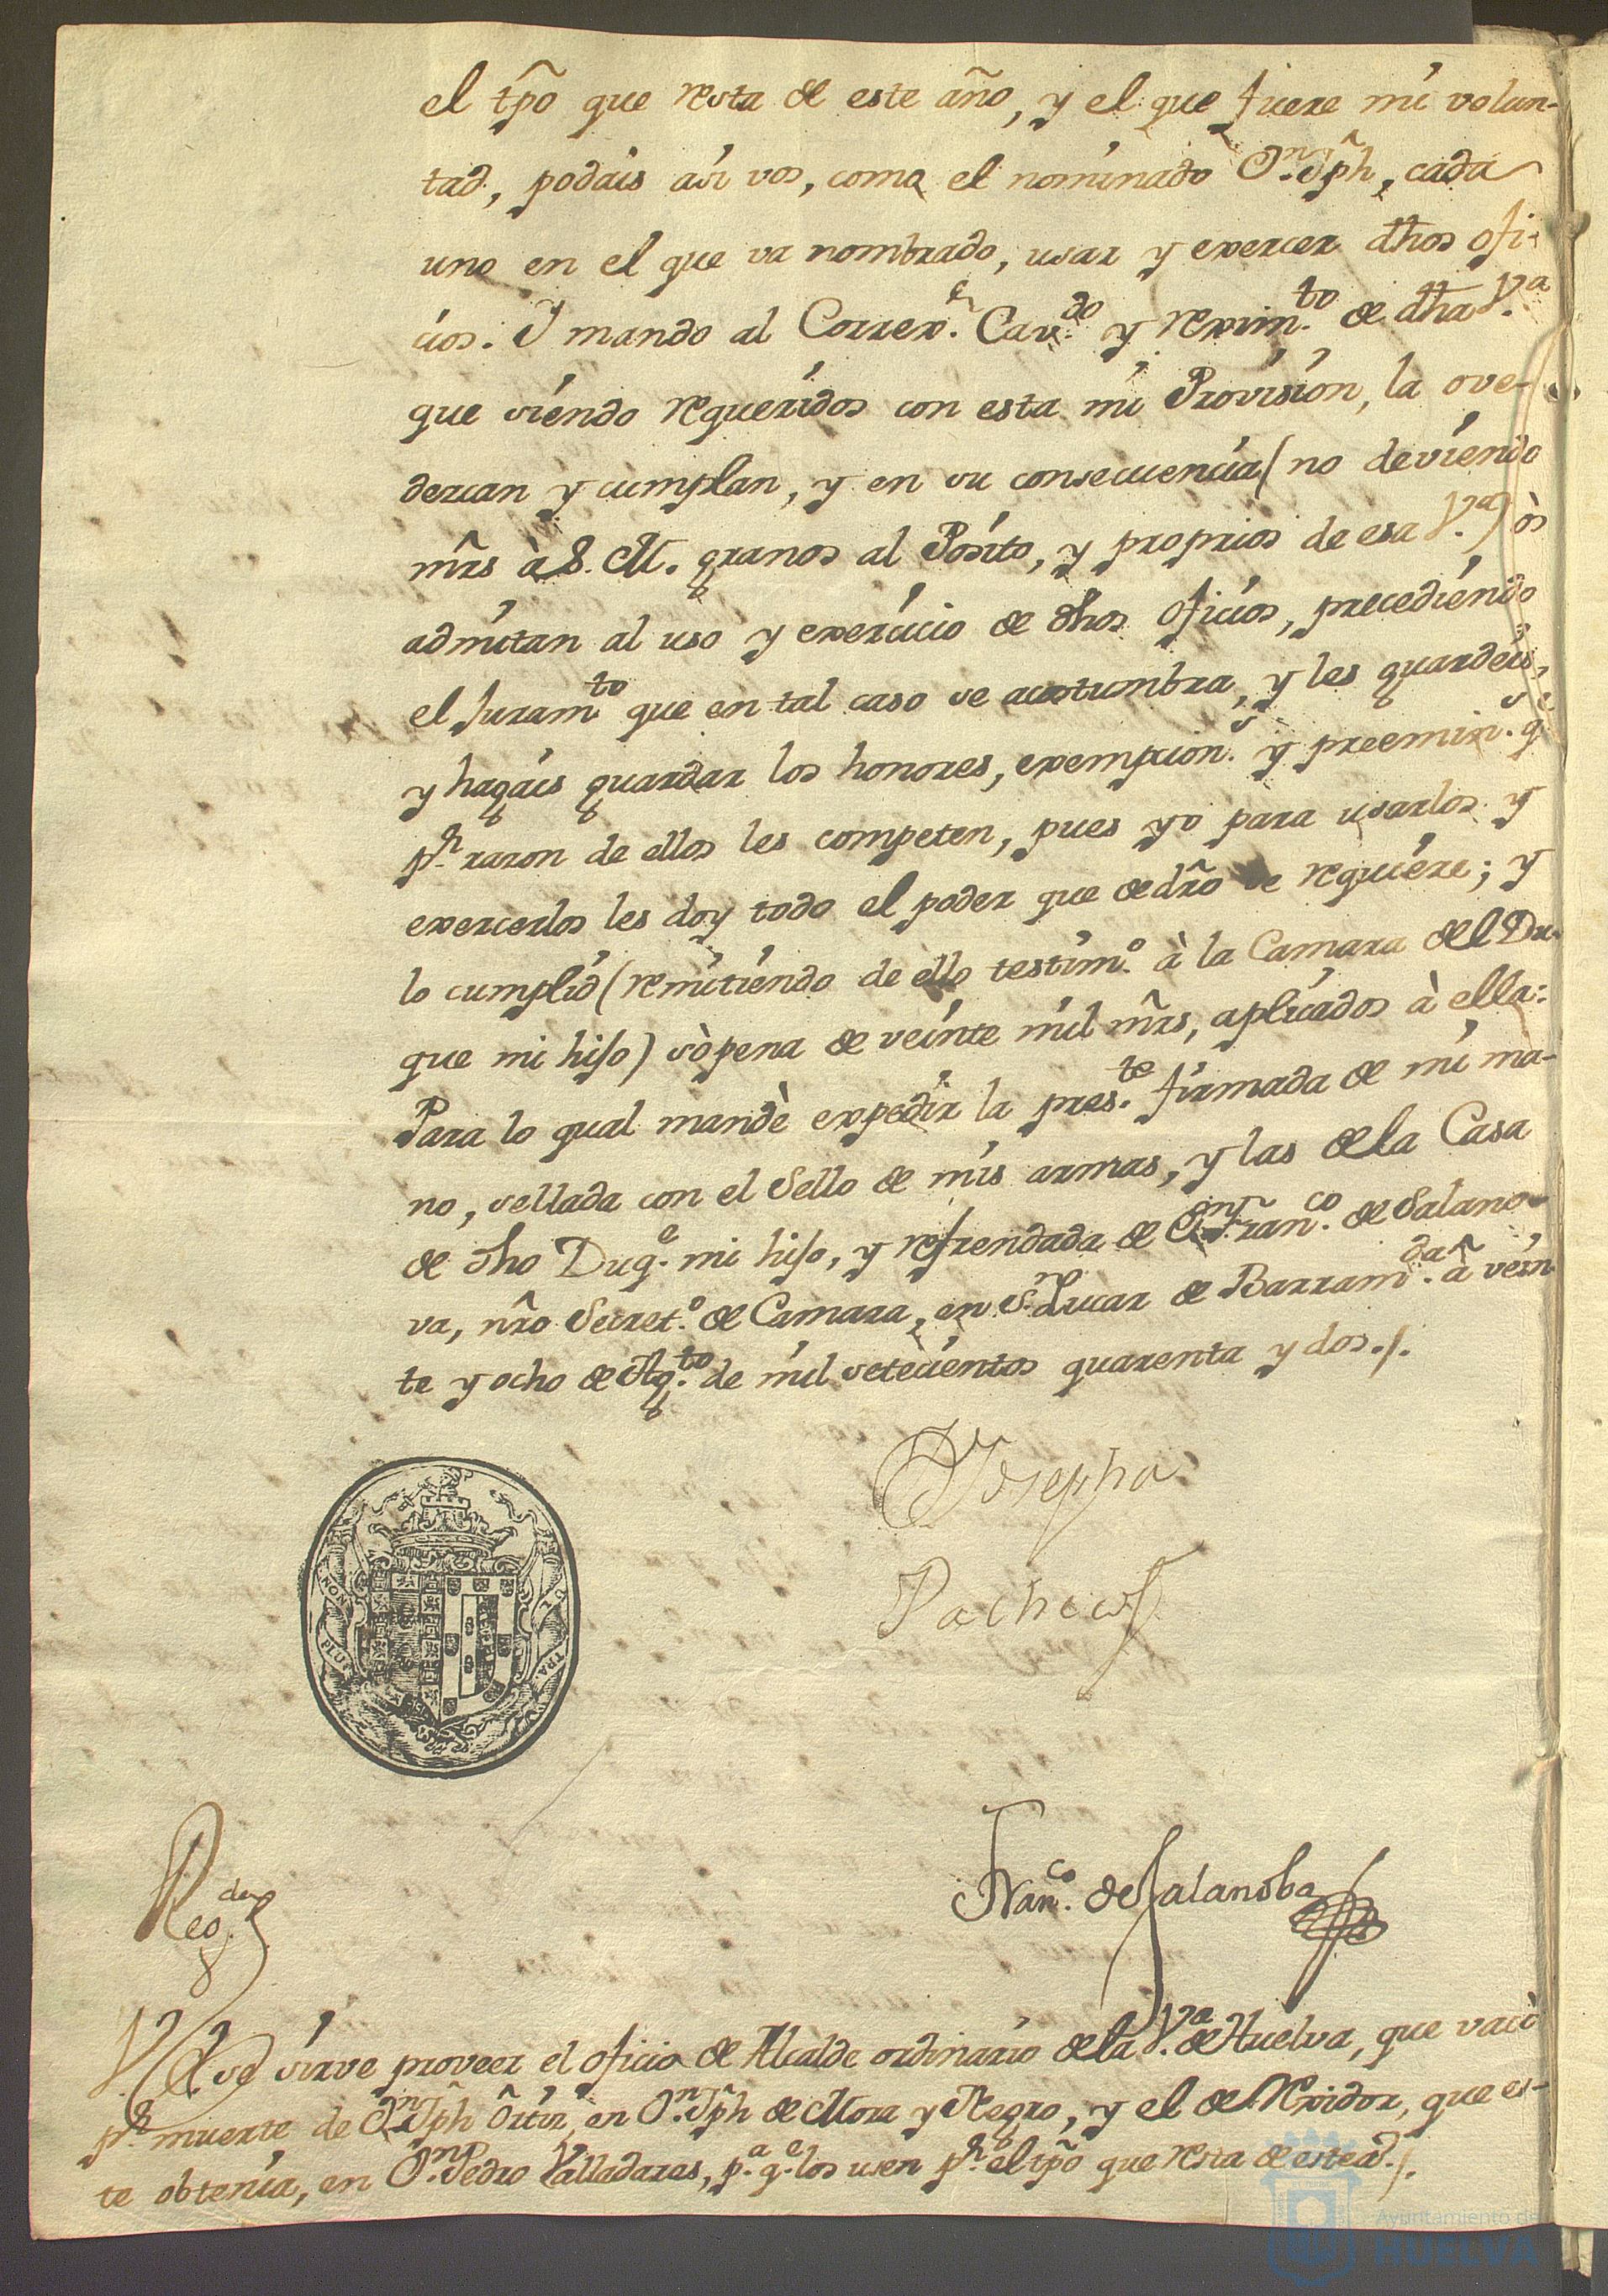 el tp̃o que resta de este año, y el que fuere mi volun-
tad, podáis así vos, como el nominado Dn. Jph̃, cada
uno en el que va nombrado, usar y exercer dh̃os ofi-
cios. Y mando al Correxr. Cavdo. y reximto. de dh̃a Va.
que siendo requeridos con esta mi Provisión, la ove-
dezcan y cumplan, y en su consecuencia (no deviendo
mr̃s à S. M. granos al Pósito, y proprios de esa Va.) òs
admitan al uso y exercicio de dh̃os oficios, precediendo
el Juramto. que en tal caso se acostumbra, y les guardéis,
y hagáis guardar los honores, exempcions. y preemins. qe.
pr. razon de ellos les competen, pues yo para usarlos y
exercerlos les doy todo el poder que de dr̃o se requiere; y
lo cumplid (remitiendo de ello testimo. à la Camara del Du-
que mi hijo) sò pena de veinte mil mr̃s, aplicados à ella:
Para lo qual mandè expedir la preste. firmada de mi ma-
no, sellada con el Sello de mis armas, y las de la Casa
de dh̃o Duqe. mi hijo, y refrendada de Dn. Franco. de Salano-
va, nr̃o Secreto. de Camara, en Sn. Lucar de Barramda. à vein
te y ocho de Agto. de mil setecientos quarenta y dos./.
Josepha
Pacheco
NON PLUS ULTRA
Franco. de Salanoba
Regda.
V. E. se sirve proveer el oficio de Alcalde ordinario de la Va. de Huelva, que vacò
pr. muerte de Dn. Jph̃ Ortiz, en Dn. Jph̃ de Mora y Negro, y el de Rexidor, que es-
te obtenía, en Dn. Pedro Valladares, pa. qe. los usen pr. el tp̃o que resta de este aº./.
Ayuntamiento de
HUELVA